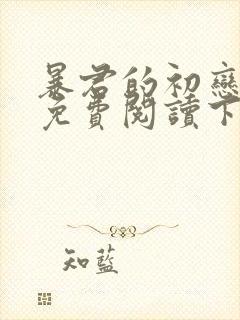 暴君的初戀
免費閱讀下
知藍